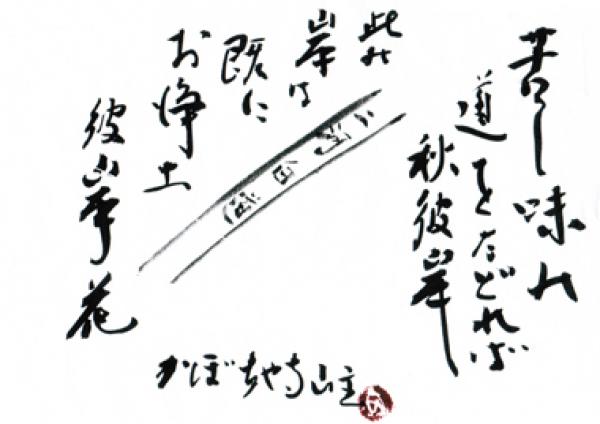 苦し味の
道をたどれば
秋彼岸
此の
岸は
既に
お浄土
彼岸花
かぼちゃ寺山主